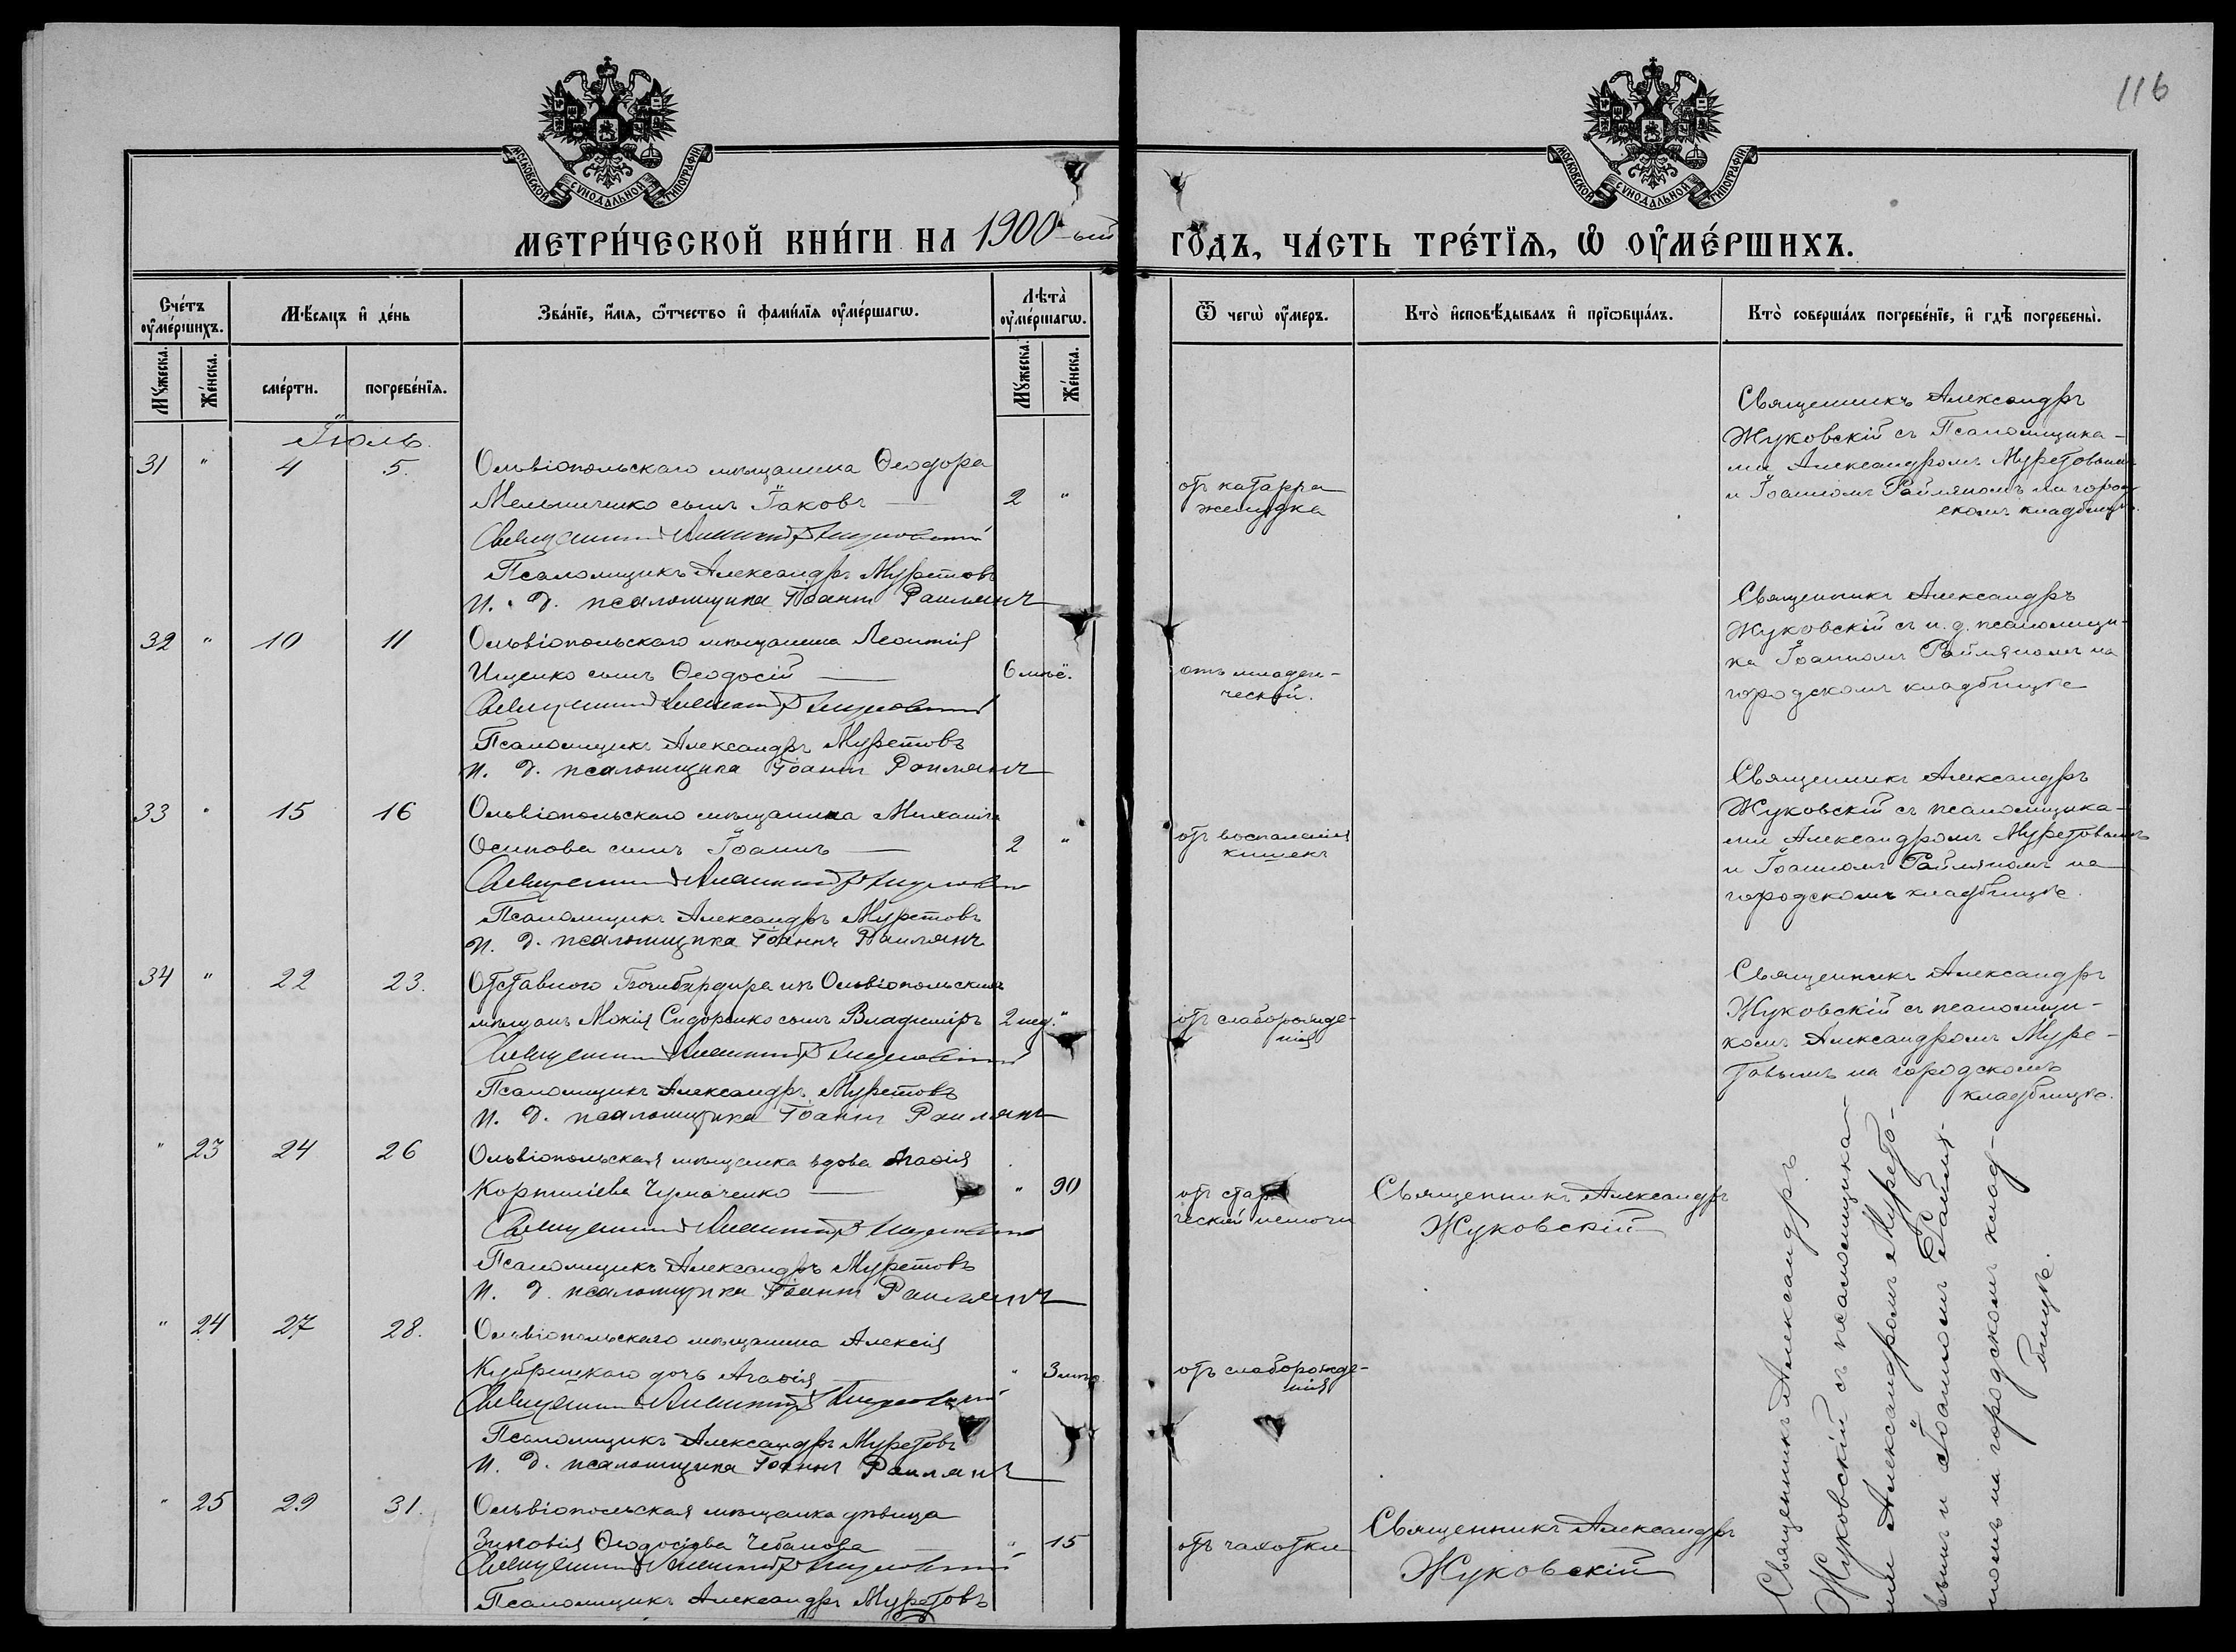 116
МОСКОВСКОЙ СѴНОДАЛЬНОЙ ТИПОГРАФІИ
МОСКОВСКОЙ СѴНОДАЛЬНОЙ ТИПОГРАФІИ
МЕТРИ́ЧЕСКОЙ КНИ́ГИ НА 1900-ый ГО́ДЪ, ЧА́СТЬ ТРЕ́ТЇѦ, Ѡ҆ ОУ҆МЕ́РШИХЪ.
Сче́тъ оу҆ме́ршихъ.
Мѣ́сѧцъ и҆ де́нь
Зва́нїе, и҆́мѧ, ѻ҆́тчество и҆ фами́лїѧ оу҆ме́ршагѡ.
Лѣта̀ оу҆ме́ршагѡ.
Ѿ чегѡ̀ оу҆́меръ.
Кто̀ и҆сповѣ́дывалъ и҆ прїѡбща́лъ.
Кто̀ соверша́лъ погребе́нїе, и҆ гдѣ̀ погребены̀.
Мꙋ́жеска.
Же́нска.
сме́рти.
погребе́нїѧ.
Мꙋ́жеска.
Же́нска.
Іюль.
31 " 4 5. Ольвіопольскаго мѣщанина Ѳеодора
Мельниченко сынъ Іаковъ — 2 "
Священникъ Александръ Жуковскій
Псаломщикъ Александръ Муретовъ
И. д. псаломщика Іоаннъ Раилянъ
отъ катарра
желудка
Священникъ Александръ
Жуковскій съ Псаломщика-
ми Александромъ Муретовымъ
и Іоанномъ Райляномъ на город-
скомъ кладбищѣ.
32 " 10 11 Ольвіопольскаго мѣщанина Леонтія
Ищенко сынъ Ѳеодосій — 6 мѣс.
Священникъ Александръ Жуковскій
Псаломщикъ Александръ Муретовъ
И. д. псаломщика Іоаннъ Раилянъ
отъ младен-
ческой.
Священникъ Александръ
Жуковскій съ и. д. псаломщи-
ка Іоанномъ Райляномъ на
городскомъ кладбищѣ
33 " 15 16 Ольвіопольскаго мѣщанина Михаила
Осипова сынъ Іоаннъ — 2 "
Священникъ Александръ Жуковскій
Псаломщикъ Александръ Муретовъ
И. д. псаломщика Іоаннъ Раилянъ
отъ воспаленія
кишекъ
Священникъ Александръ
Жуковскій съ псаломщика-
ми Александромъ Муретовымъ
и Іоанномъ Райляномъ на
городскомъ кладбищѣ.
34 " 22 23. Отставного Бомбардира изъ Ольвіопольскихъ
мѣщанъ Мокія Сидоренко сынъ Владиміръ 2 нед. "
Священникъ Александръ Жуковскій
Псаломщикъ Александръ Муретовъ
И. д. псаломщика Іоаннъ Раилянъ
отъ слаборожде-
нія
Священникъ Александръ
Жуковскій съ псаломщи-
комъ Александромъ Муре-
товымъ на городскомъ
кладбищѣ.
" 23 24 26 Ольвіопольская мѣщанка вдова Агаѳія
Корниліева Чумаченко — " 90
Священникъ Александръ Жуковскій
Псаломщикъ Александръ Муретовъ
И. д. псаломщика Іоаннъ Раилянъ
отъ стар
ческой немочи
Священникъ Александръ
Жуковскій
" 24 27 28. Ольвіопольскаго мѣщанина Алексія
Кубрицкаго дочь Агаѳія " 3
Священникъ Александръ Жуковскій
Псаломщикъ Александръ Муретовъ
И. д. псаломщика Іоаннъ Раилянъ
отъ слаборожде-
нія
" 25 29 31. Ольвіопольская мѣщанка дѣвица
Зиновія Ѳеодосіева Чебанова — " 15
Священникъ Александръ Жуковскій
Псаломщикъ Александръ Муретовъ
отъ чахотки
Священникъ Александръ
Жуковскій
Священникъ Александръ
Жуковскій съ псаломщика-
ми Александромъ Мурето-
вымъ и Іоанномъ Райля-
номъ на городскомъ клад-
бищѣ.